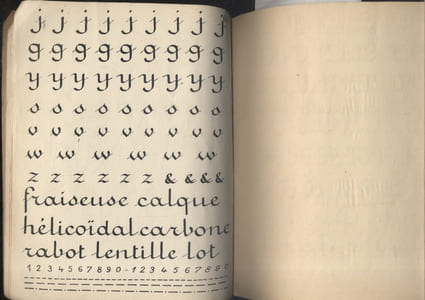 j j j j j j j j j
g g g g g g g g g
y y y y y y y y y
s s s s s s s s
v v v v v v v v
w w w w w w
z z z z z z & & & &
fraiseuse calque
hélicoïdal carbone
rabot lentille lot
1 2 3 4 5 6 7 8 9 0 - 1 2 3 4 5 6 7 8 9 0